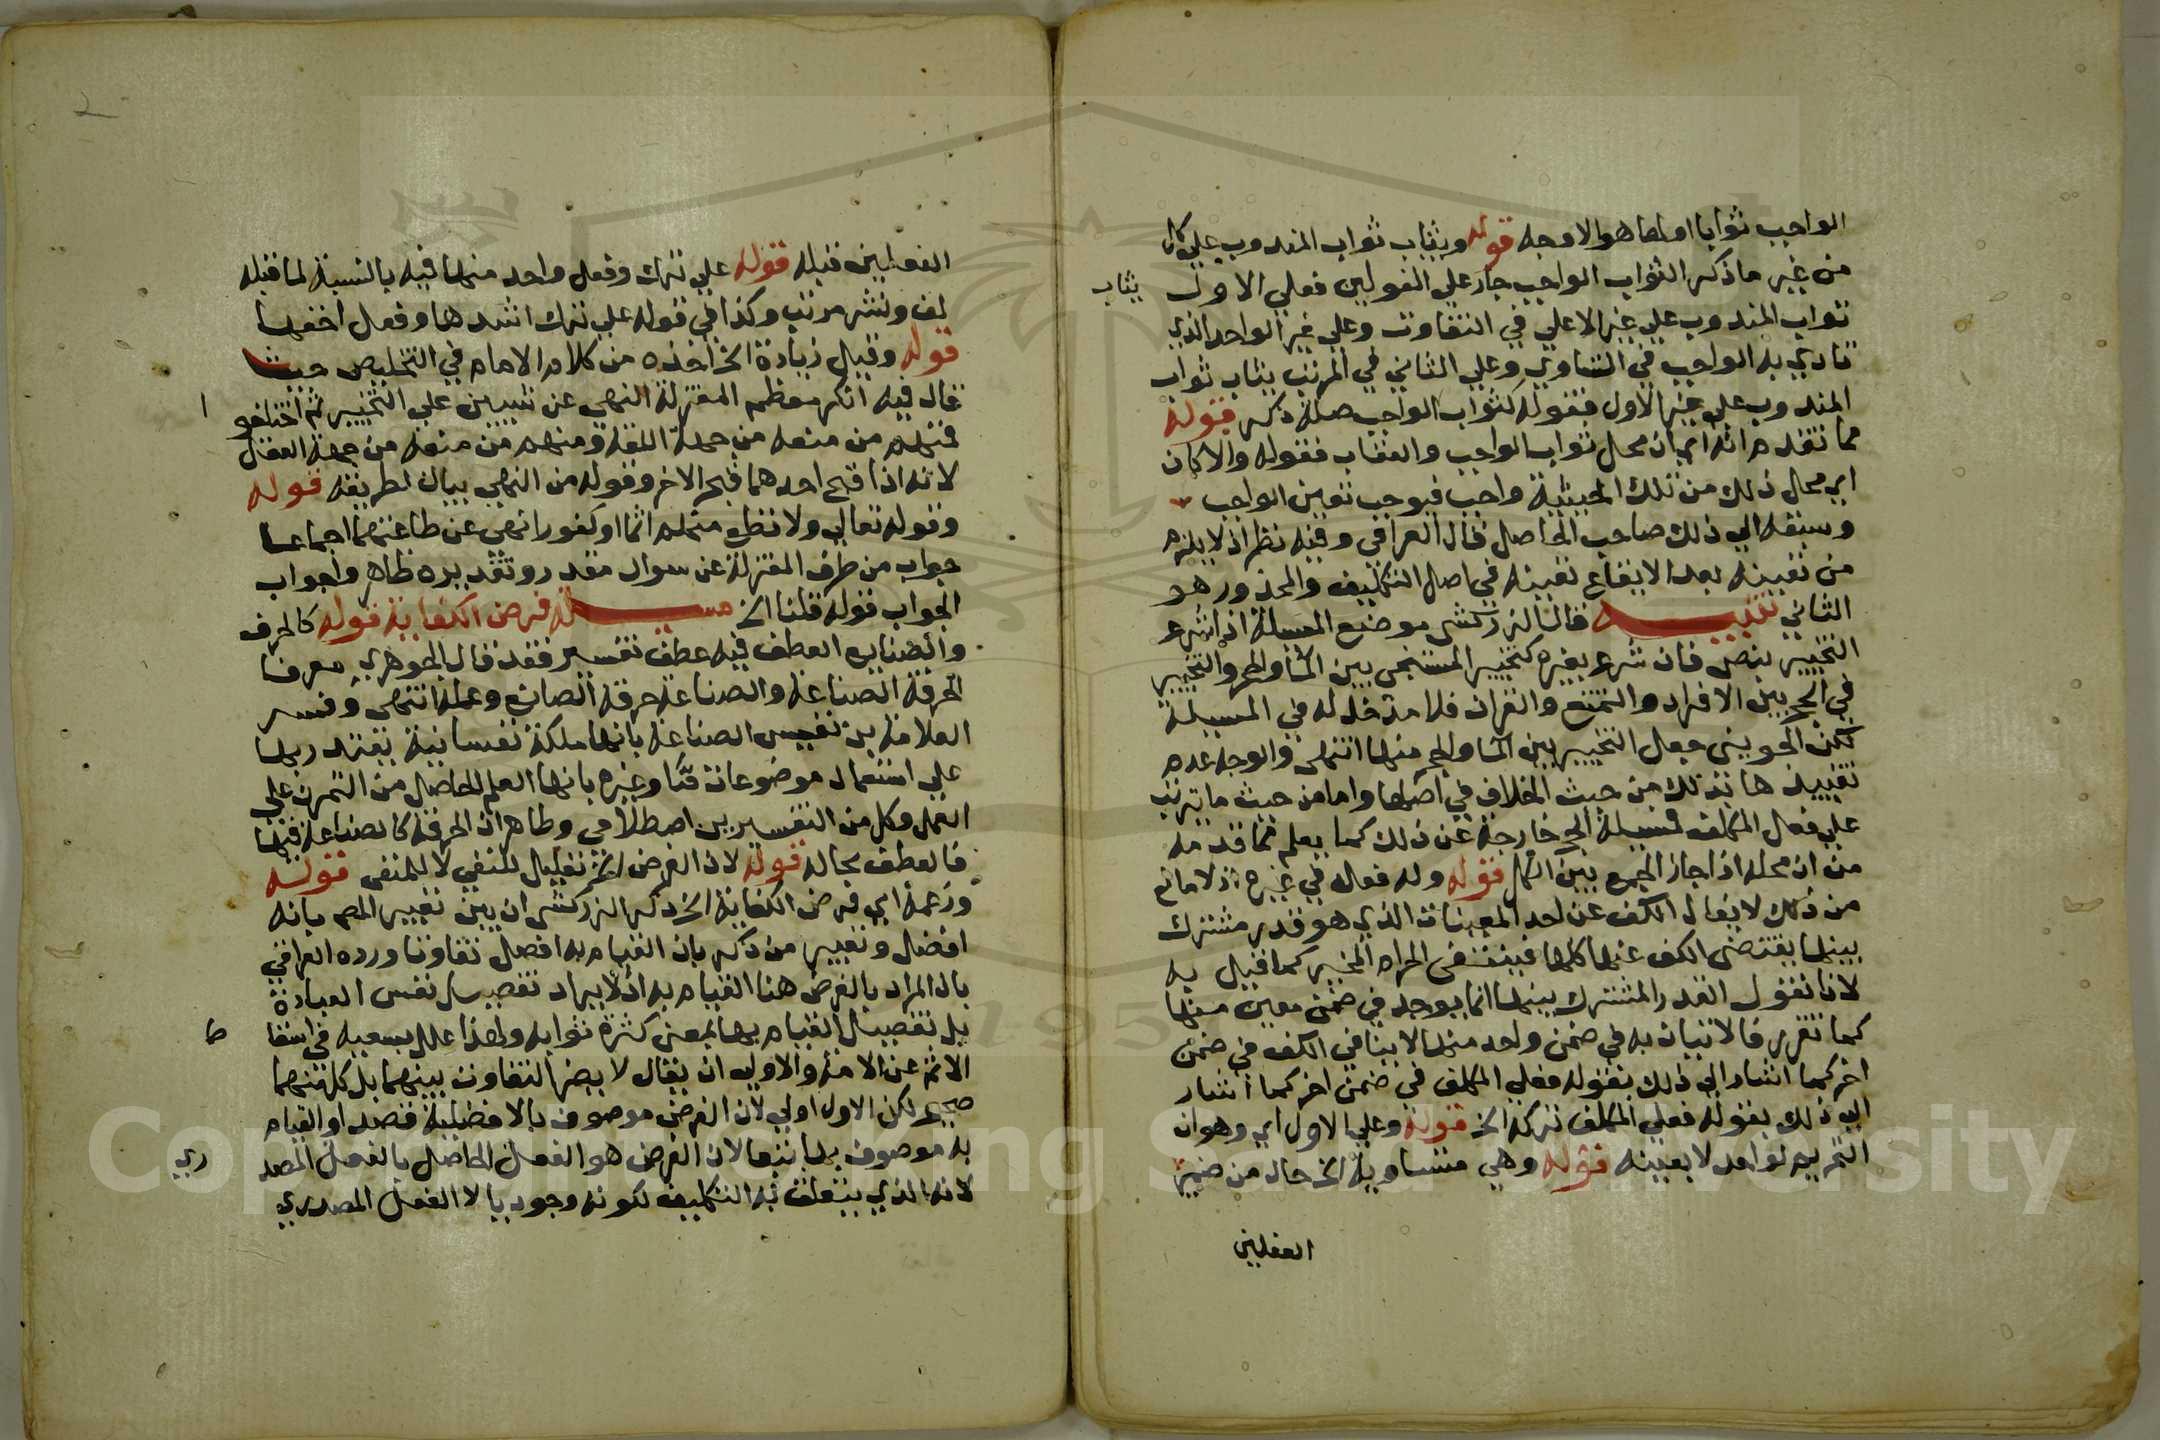 الواجب ثوابا اولها هو الاوجه قوله ويثاب ثواب المندوب على كل
يثاب
من غير ما ذكر الثواب الواجب جار على القولين فعلى الاول
ثواب المندوب على غير الاعلى في التفاوت وعلى غير الواحد الذي
تادي به الواجب في التساوي وعلى الثاني في المرتب يثاب ثواب
المندوب على غير الاول فقوله كثواب الواجب صلة ذكر قوله
مما تقدم انه اي ان محل ثواب الواجب والعقاب فقوله والا كان
اي محل ذلك من تلك الحيثية واجب فيوجب تعين الواجب
وسبقه الى ذلك صاحب الحاصل قال العراقي وفيه نظر اذ لا يلزم
من تعيينه بعد الايقاع تعيينه في اصل التكليف والمحذور هو
الثاني تنبيه قال الزركشي موضع المسالة اذا شرع
التخيير بنص فان شرع بغيره كتخيير المستنجي بين الما والحجر والتخيير
في الحج بين الافراد والتمتع والقران فلا مدخل له في المسيلة
لكن الجويني جعل التخيير بين الما والحجر منها انتهى والوجه عدم
تقييدها بذلك من حيث الخلاف في اصلها واما من حيث ما ترتب
على فعل المكلف فمسيلة الحج خارجة عن ذلك كما يعلم مما قدمه
من ان محله اذا جاز الجمع بين الكل قوله وله فعله في غيره اذ لا مانع
من ذلك لا يقال الكف عن احد المعينات الذي هو قدر مشترك
بينها يقتضي الكف عنها كلها فينتفي الحرام المخير كما قيل به
لانا نقول القدر المشترك بينها انما يوجد في ضمن معين منها
كما تقرر فالاتيان به في ضمن واحد منها لا ينافي الكف في ضمن
اخر كما اشار الى ذلك بقوله فعلى المكلف في ضمن اخر كما اشار
الى ذلك بقوله فعلى المكلف تركه الخ قوله وعلى الاول اي وهو ان
التحريم لواحد لا بعينه قوله وهي متساوية الخ حال من ضمير
الفعلين
الفعلين قبله قوله على ترك وفعل واحد منها فيه بالنسبة لما قبله
لف ونشر مرتب وكذا في قوله على ترك اشدها وفعل اخفها
قوله وقيل زيادة الخ اخذه من كلام الامام في التخليص حيث
قال فيه انكر معظم المعتزلة النهي عن شيين على التخيير ثم اختلفو
ا
فمنهم من منعه من جهة اللغة ومنهم من منعه من جهة العقل
لانه اذا قبح احدهما قبح الاخر وقوله من النهي بيان لطريقه قوله
وقوله تعالى ولا تطع منهم اثما او كفورا نهي عن طاعتهما اجماعا
جواب من طرف المعتزلة عن سوال مقدر وتقديره ظاهر وجواب
الجواب قوله قلنا الخ مسالة فرض الكفاية قوله كالحرف
والصنايع العطف فيه عطف تفسير فقد قال الجوهري معرفا
الحرفة الصناعة والصناعة حرفة الصانع وعمله انتهى وفسر
العلامة بن نفيس الصناعة بانها ملكة نفسانية يقتدر بها
على استعمال موضوعات ما وغيره بانها العلم الحاصل من التمرن على
العمل وكل من التفسيرين اصطلاحي وظاهر ان الحرفة كالصناعة فيهما
فالعطف بحاله قوله لان الغرض الخ تعليل للنفي لا للمنفي قوله
وزعمه اي فرض الكفاية الخ ذكر الزركشي ان بين تعبير المص بانه
افضل وتعبير من ذكر بان القيام به افضل تفاوتا ورده العراقي
بان المراد بالفرض هنا القيام به اذ لا يراد تفضيل نفس العبادة
بل تفضيل القيام بها بمعنى كثرة ثوابه ولهذا علل بسعيه في اسقا
ط
الاثم عن الامة والاولى ان يقال لا يضر التفاوت بينهما بل كلتيهما
صحيح لكن الاول اولى لان الفرض موصوف بالافضلية قصدا والقيام
به موصوف بها تبعا لان الفرض هو الفعل الحاصل بالفعل المصد
ري
لانه الذي يتعلق به التكليف لكونه وجوديا لا الفعل المصدري
Copyright © King Saud University
1957